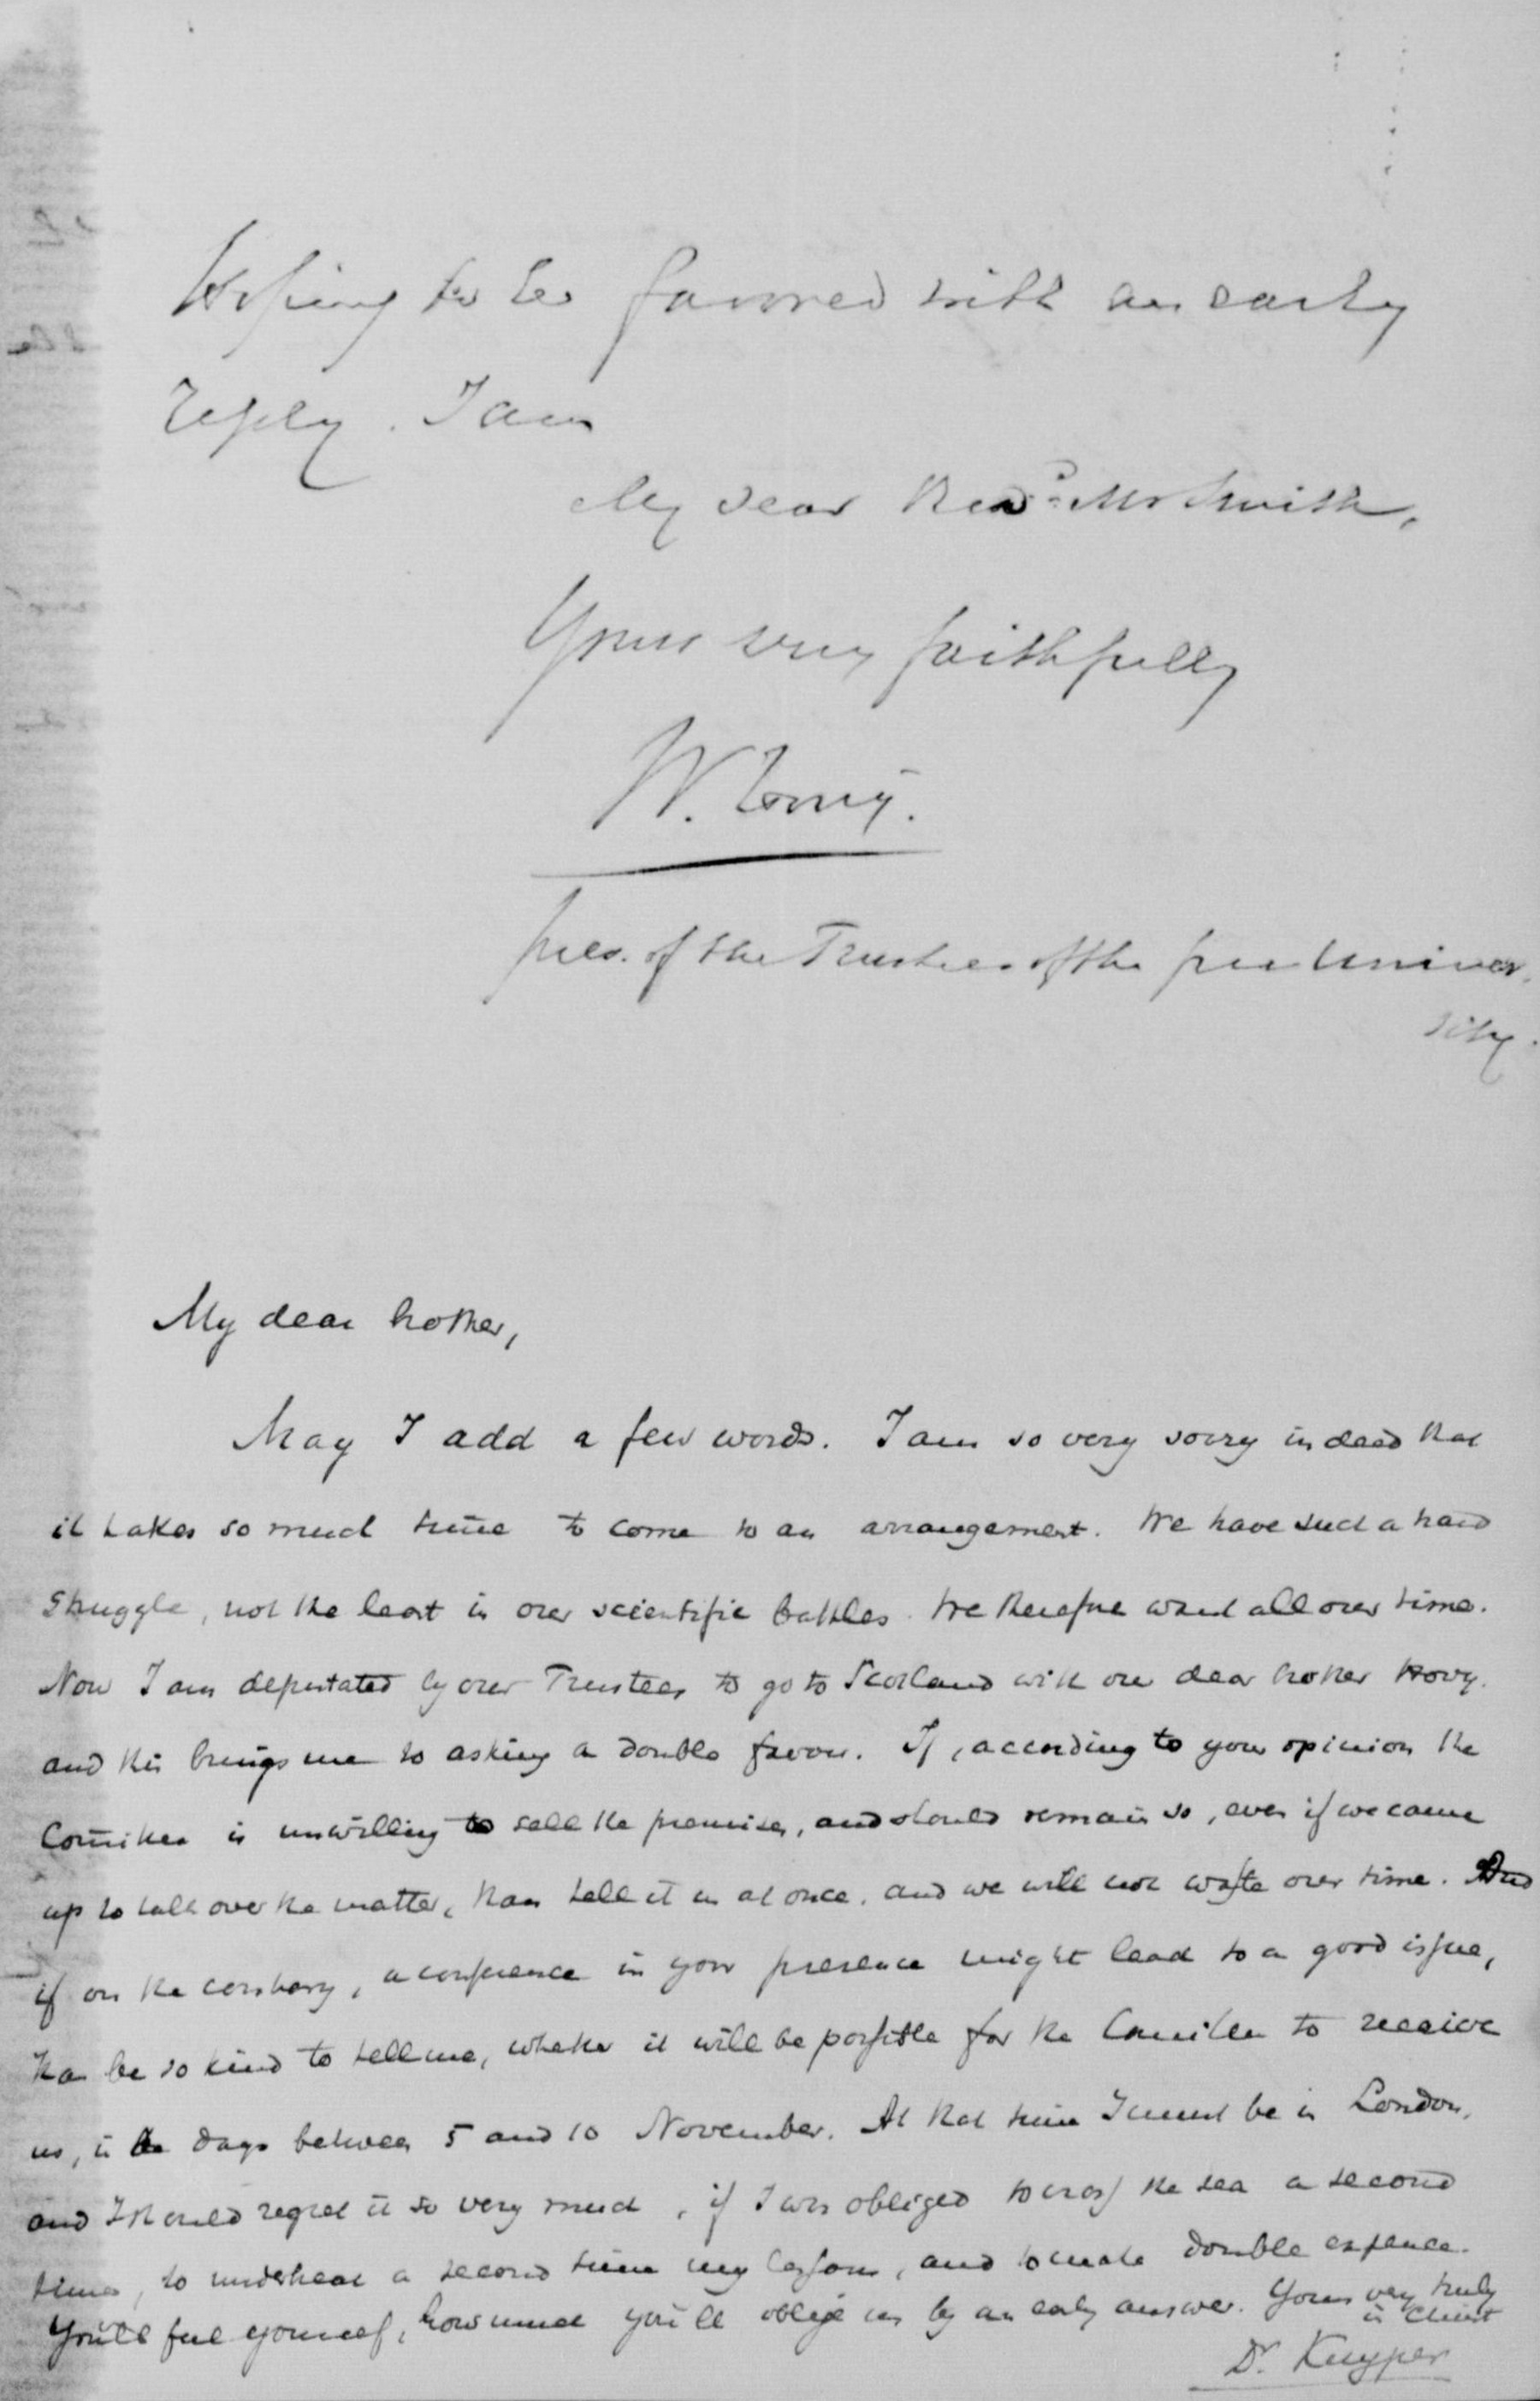 Hoping to be favored with an early
reply. I am
My dear Revd. Mr Smith,
Yours very faithfully
W. Hovy.
pres. of the Trustees of the free Univer-
sity.
My dear brother,
May I add a few words. I am so very sorry indeed that
it takes so much time to come to an arrangement. We have such a hard
struggle, not the least in our scientific battles. We therefore want all our time.
Now I am deputated by our Trustees to go to Scotland with our dear brother Hovy.
and this brings me to asking a double favour. If, according to your opinion the
Comittee is unwilling to sell the premises, and should remain so, even if we came
up to talk over the matter, than tell it us at once. and we will not waste our time. And
if on the contrary, a conference in your presence might lead to a good issue,
than be so kind to tell me, whether it will be possible for the Comittee to receive
us, in the days between 5 and 10 November. At that time I must be in London,
and I should regret it so very much, if I was obliged to cross the sea a second
time, to a second time my lessons, and to make double expence.
You'll feel yourself, how much you'll oblige us by an early answer. Yours very truly
in Christ
Dr. Kuyper